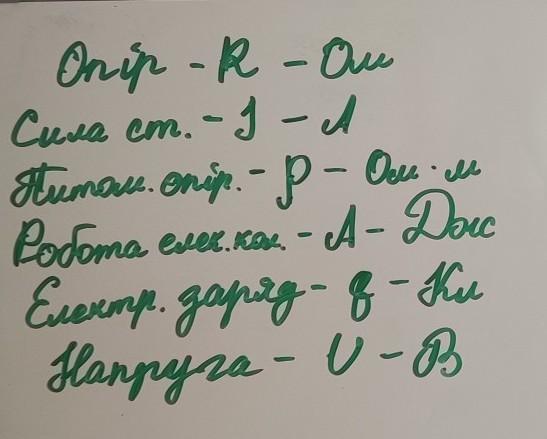 Опір - R - Ом
Сила ст. - I - А
Питом. опір. - ρ - Ом·м
Робота елек. кол. - А - Дж
Електр. заряд - q - Кл
Напруга - U - В